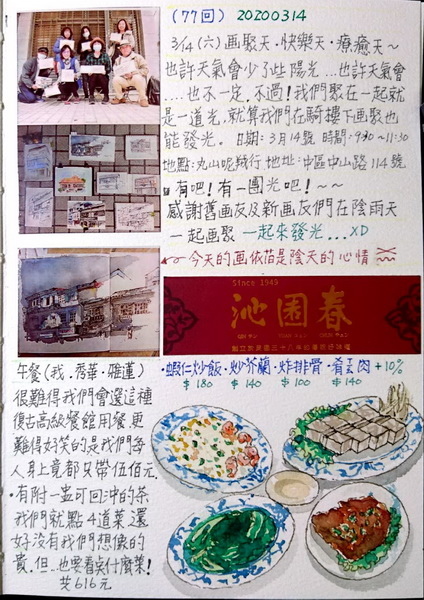 (77回) 20200314
3/14(六)画聚天·快樂天·療癒天~
也許天氣會少了些陽光...也許天氣會
...也不一定.不過!我們聚在一起就
是一道光,就算我們在騎樓下画聚也
能發光。日期:3月14號 時間:9:30~11:30
地點:丸山呢羢行 地址:中區中山路114號
有吧!有一團光吧!~~
感謝舊画友及新画友們在陰雨天
一起画聚 一起來發光...XD
今天的画依舊是陰天的心情
Since 1949
沁園春
午餐(我.秀華.雅蓮)
很難得我們會選這種
復古高級餐館用餐.更
難得好笑的是我們每
人身上竟都只帶伍佰元.
·有附一盅可回沖的茶
我們就點4道菜.還
好沒有我們想像的
貴.但...也要看吃什麼菜!
共616元
·蝦仁炒飯·炒芥蘭·炸排骨·肴肉+10%
$180 $140 $100 $140